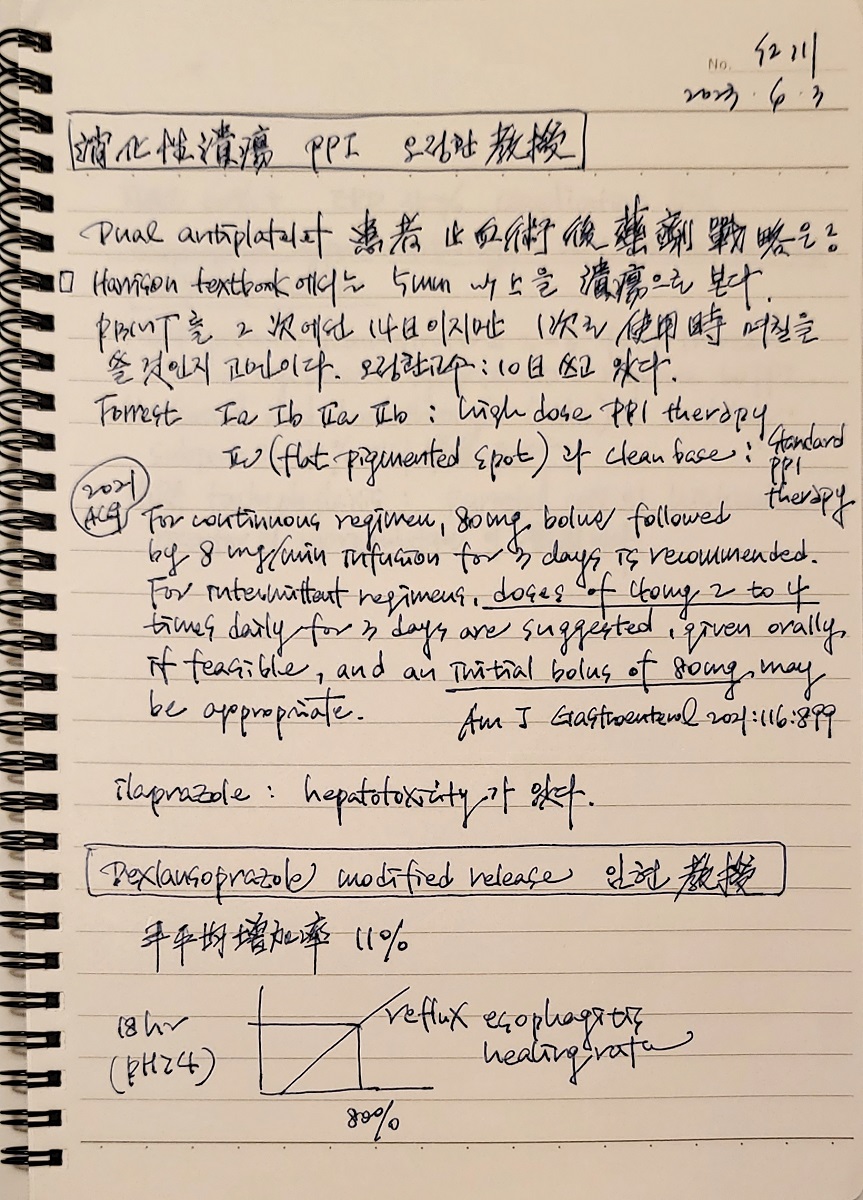 No. 仁川
2023. 6. 3
消化性潰瘍 PPI 오정환 教授
Dual antiplatelet 患者 止血術 後 藥劑 戰略은?
□ Harrison textbook에서는 5mm 以上을 潰瘍으로 본다.
PBMT를 2次에선 14日이지만 1次로 使用時 며칠을
쓸 것인지 고민이다. 오정환교수 : 10日 쓰고 있다.
Forrest Ia Ib IIa IIb : high dose PPI therapy
IIc (flat pigmented spot) 과 clean base : standard PPI therapy
2021 ACG
For continuous regimen, 80mg bolus followed
by 8 mg/min infusion for 3 days is recommended.
For intermittent regimens, doses of 40mg 2 to 4
times daily for 3 days are suggested, given orally
if feasible, and an initial bolus of 80mg may
be appropriate. Am J Gastroenterol 2021:116:899
ilaprazole : hepatotoxicity가 있다.
Dexlansoprazole modified release 임현 教授
年平均增加率 11%
18hr
(pH≥4)
reflux esophagitis
healing rate
80%